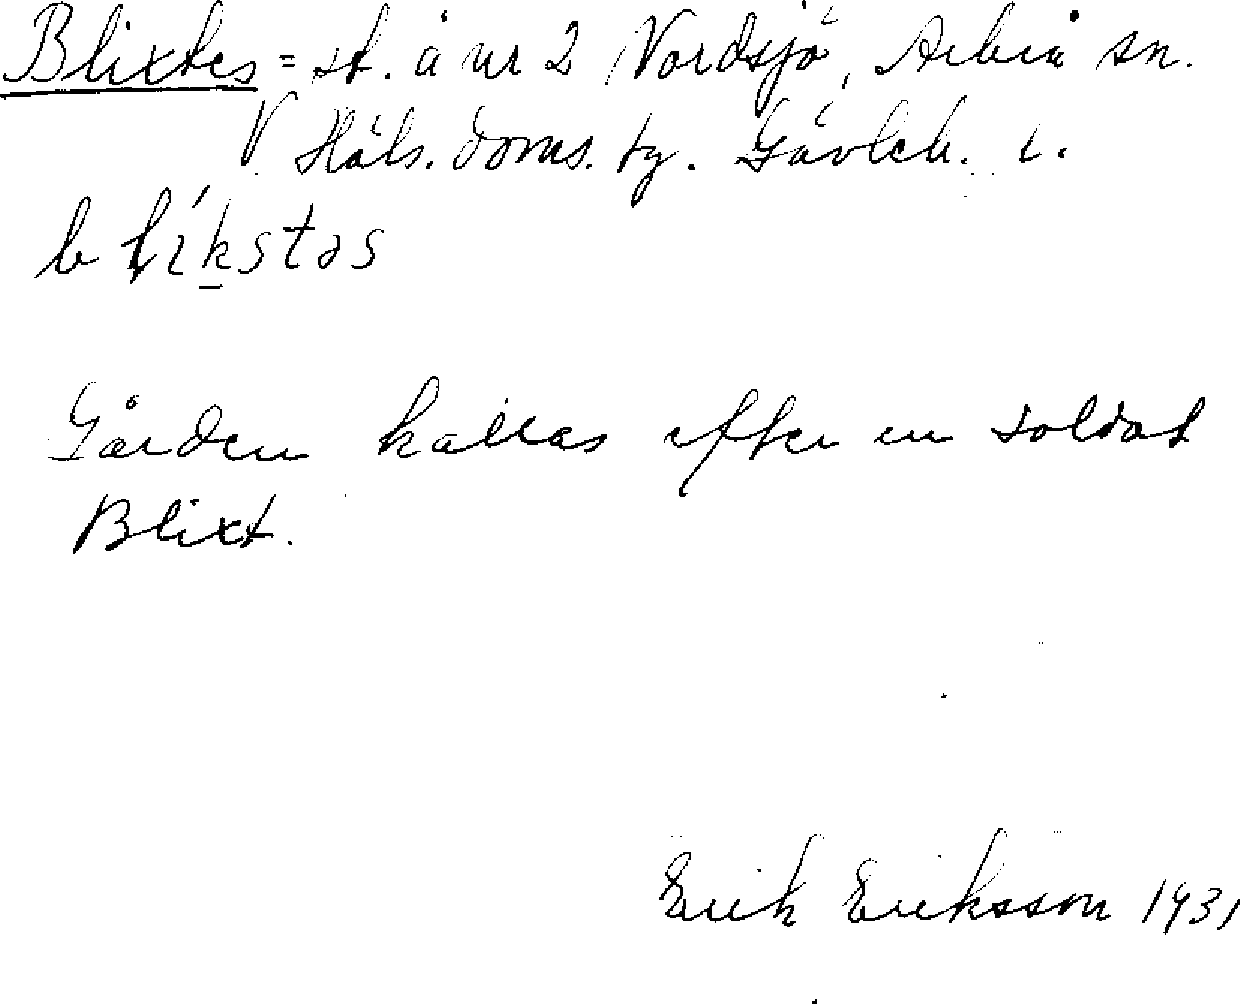 Blixtes = st. å nr 2 Nordsjö, Arbrå sn.
V Häls. doms. tg. Gävleb. l.
blíkstəs
Gården kallas efter en soldat
Blixt.
Erik Eriksson 1931